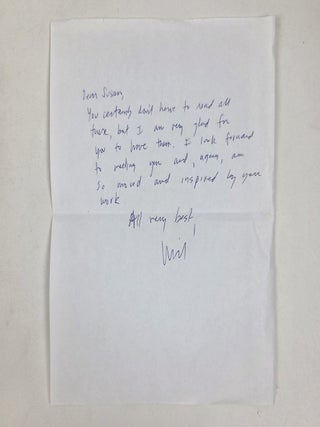 Dear Susan,
You certainly don't have to read all
these, but I am very glad for
you to have them. I look forward
to meeting you and, again, am
so moved and inspired by your
work
All very best,